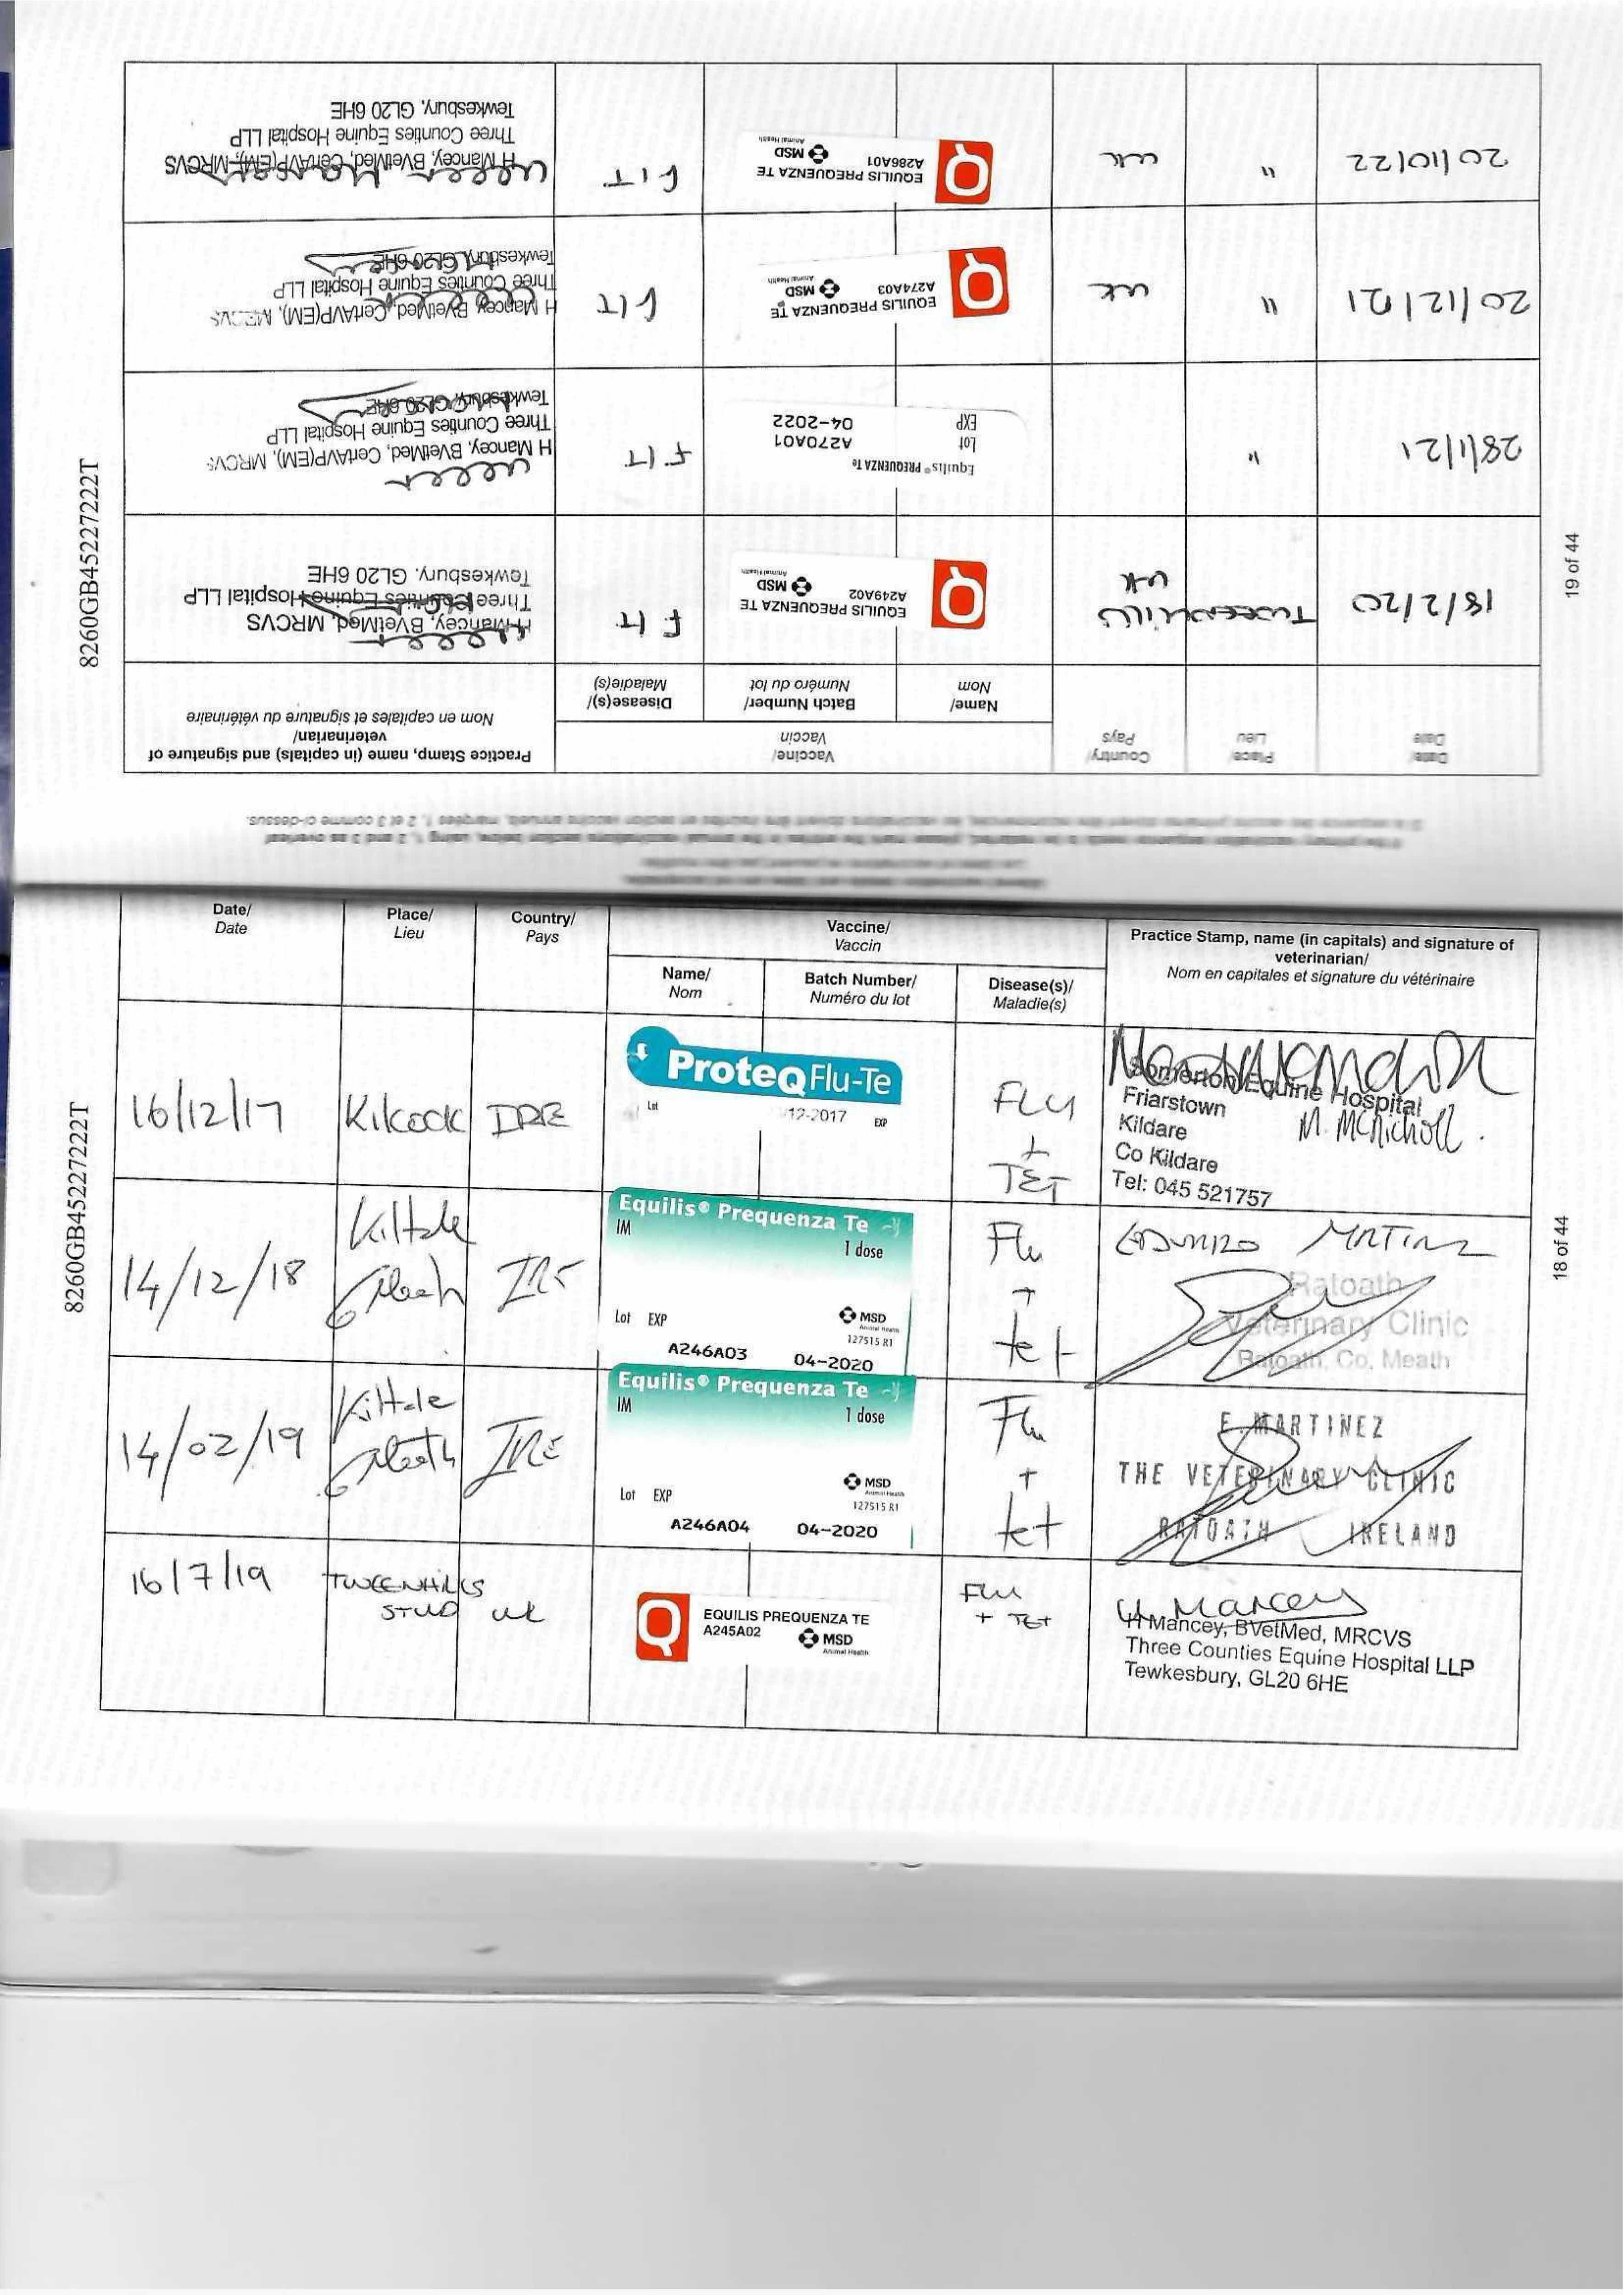 8260GB45227222T
19 of 44
If the primary vaccination sequence needs to be restarted, please mark the entries in the annual vaccinations section below, using 1, 2 and 3 as overleaf
Date/
Date
Place/
Lieu
Country/
Pays
Vaccine/
Vaccin
Practice Stamp, name (in capitals) and signature of
veterinarian/
Nom en capitales et signature du vétérinaire
Name/
Nom
Batch Number/
Numéro du lot
Disease(s)/
Maladie(s)
18/2/20
Tweenhills
UK
EQUILIS PREQUENZA TE
A249A02
MSD
Animal Health
F/T
H Mancey, BVetMed, MRCVS
Three Counties Equine Hospital LLP
Tewkesbury, GL20 6HE
28/1/21
"
Equilis® PREQUENZA Te
Lot A270A01
EXP 04-2022
F/T
H Mancey, BVetMed, CertAVP(EM), MRCVS
Three Counties Equine Hospital LLP
Tewkesbury, GL20 6HE
20/12/21
"
UK
EQUILIS PREQUENZA TE
A274A03
MSD
Animal Health
F/T
H Mancey, BVetMed, CertAVP(EM), MRCVS
Three Counties Equine Hospital LLP
Tewkesbury, GL20 6HE
20/10/22
"
UK
EQUILIS PREQUENZA TE
A286A01
MSD
Animal Health
F/T
H Mancey, BVetMed, CertAVP(EM), MRCVS
Three Counties Equine Hospital LLP
Tewkesbury, GL20 6HE
8260GB45227222T
18 of 44
Date/
Date
Place/
Lieu
Country/
Pays
Vaccine/
Vaccin
Practice Stamp, name (in capitals) and signature of
veterinarian/
Nom en capitales et signature du vétérinaire
Name/
Nom
Batch Number/
Numéro du lot
Disease(s)/
Maladie(s)
16/12/17
Kilcock
IRE
ProteqFlu-Te
Lot
12-2017
EXP
FLU
+
TET
Somerton Equine Hospital
Friarstown
Kildare
Co Kildare
Tel: 045 521757
M. McNicholl.
14/12/18
Kiltale
Meath
IRE
Equilis® Prequenza Te
IM
1 dose
Lot EXP
MSD
Animal Health
127515 R1
A246A03 04-2020
Flu
+
tet
Ratoath
Veterinary Clinic
Ratoath, Co. Meath
14/02/19
Kiltale
Meath
IRE
Equilis® Prequenza Te
IM
1 dose
Lot EXP
MSD
Animal Health
127515 R1
A246A04 04-2020
Flu
+
tet
E. MARTINEZ
THE VETERINARY CLINIC
RATOATH IRELAND
16/7/19
TWEENHILLS
STUD
UK
EQUILIS PREQUENZA TE
A245A02
MSD
Animal Health
FLU
+ TET
H Mancey
H Mancey, BVetMed, MRCVS
Three Counties Equine Hospital LLP
Tewkesbury, GL20 6HE